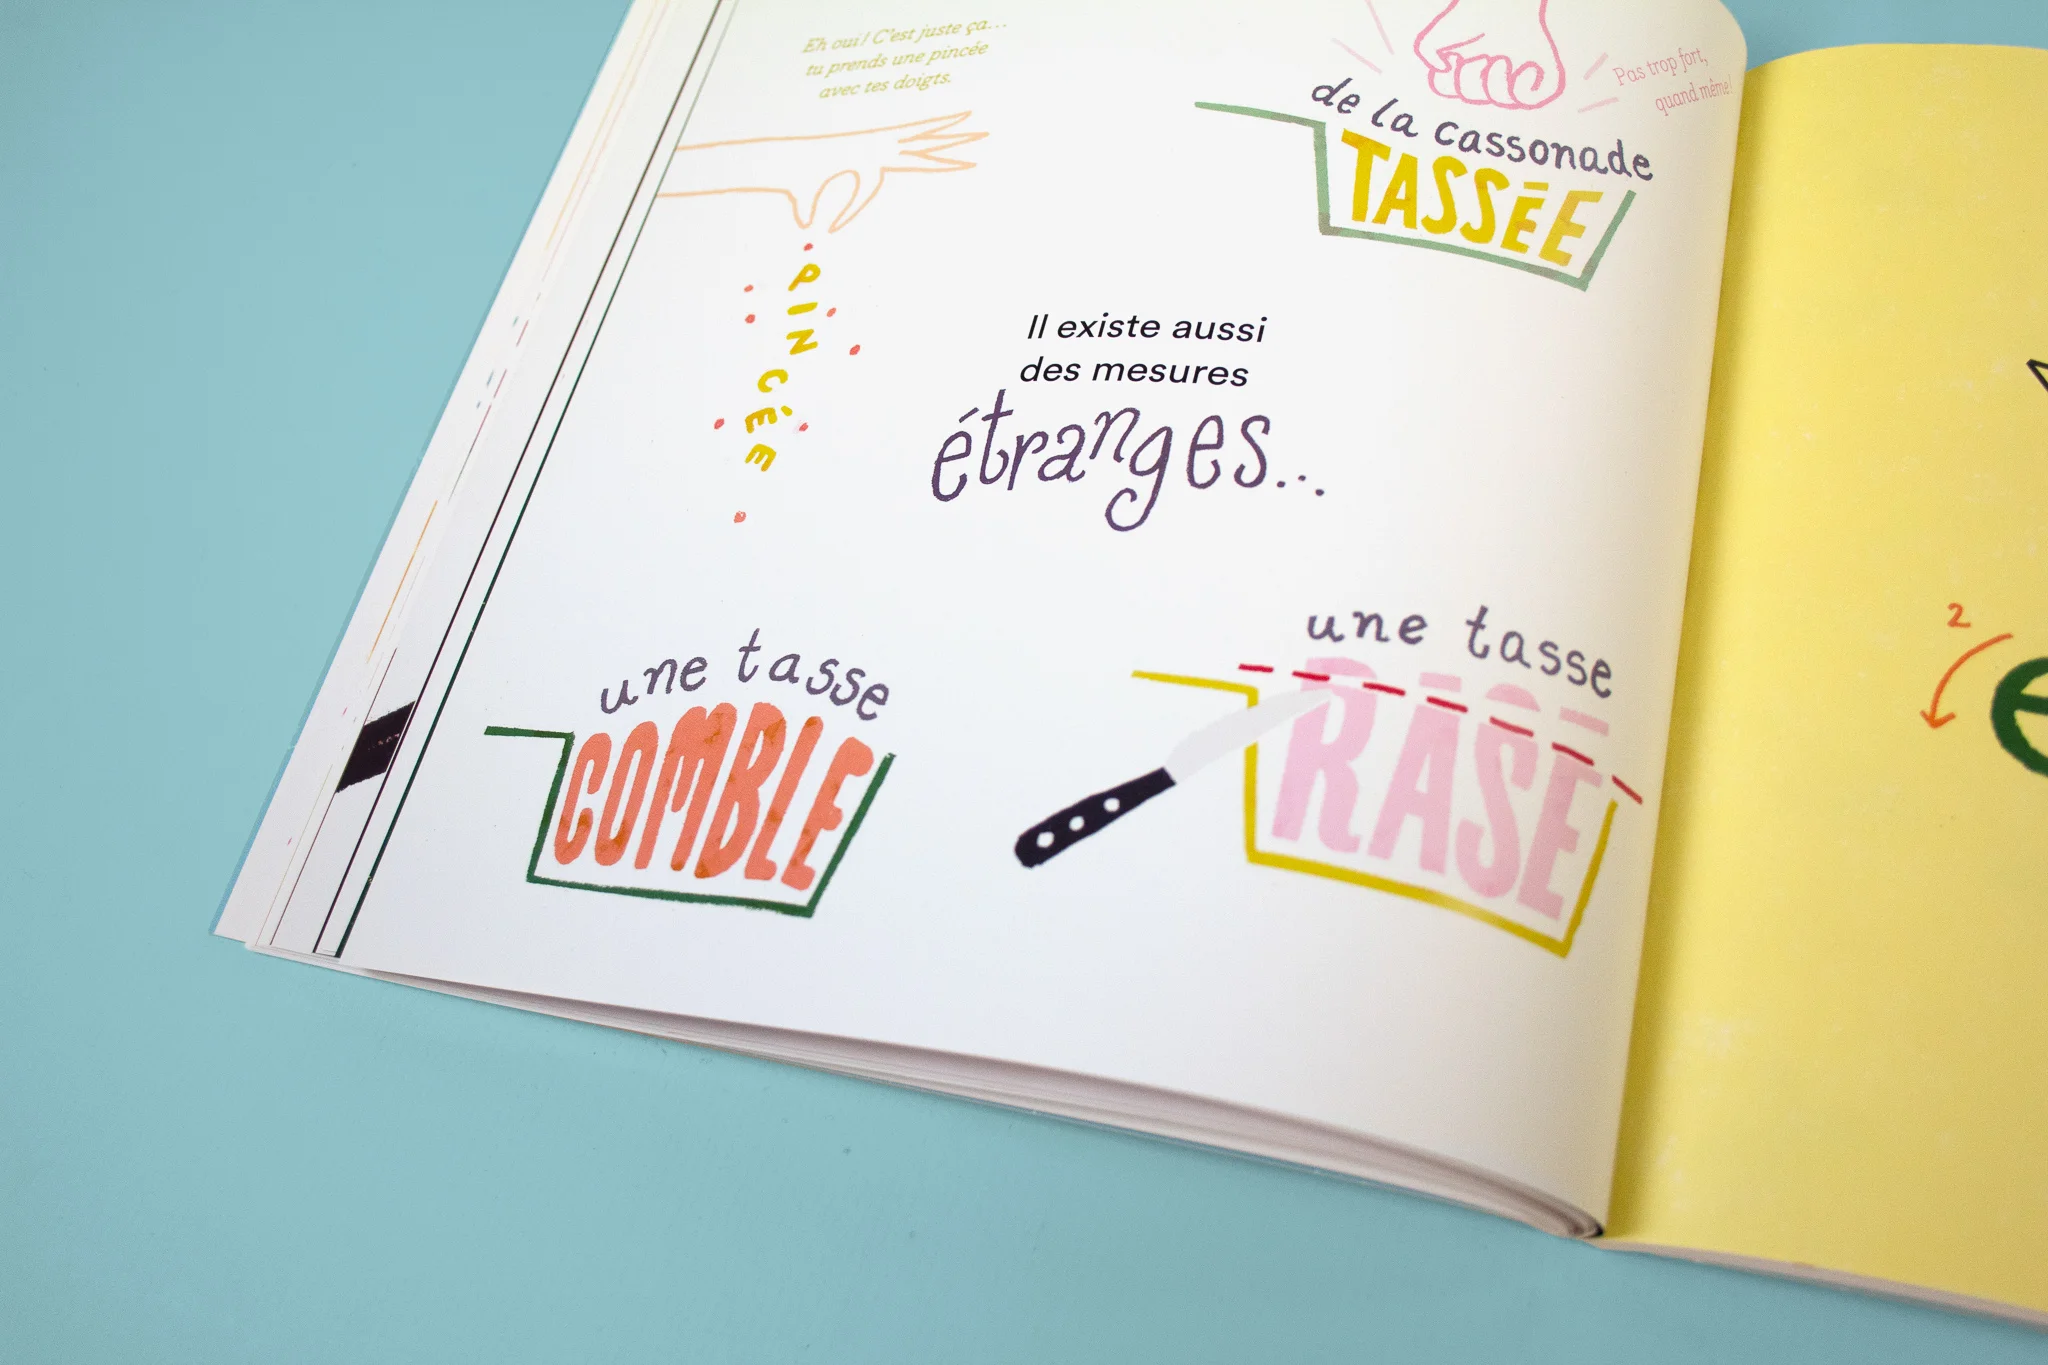 Eh oui! C'est juste ça...
tu prends une pincée
avec tes doigts.
PINCÉE
Pas trop fort,
quand même!
de la cassonade
TASSÉE
Il existe aussi
des mesures
étranges...
une tasse
COMBLE
une tasse
RASE
2
e